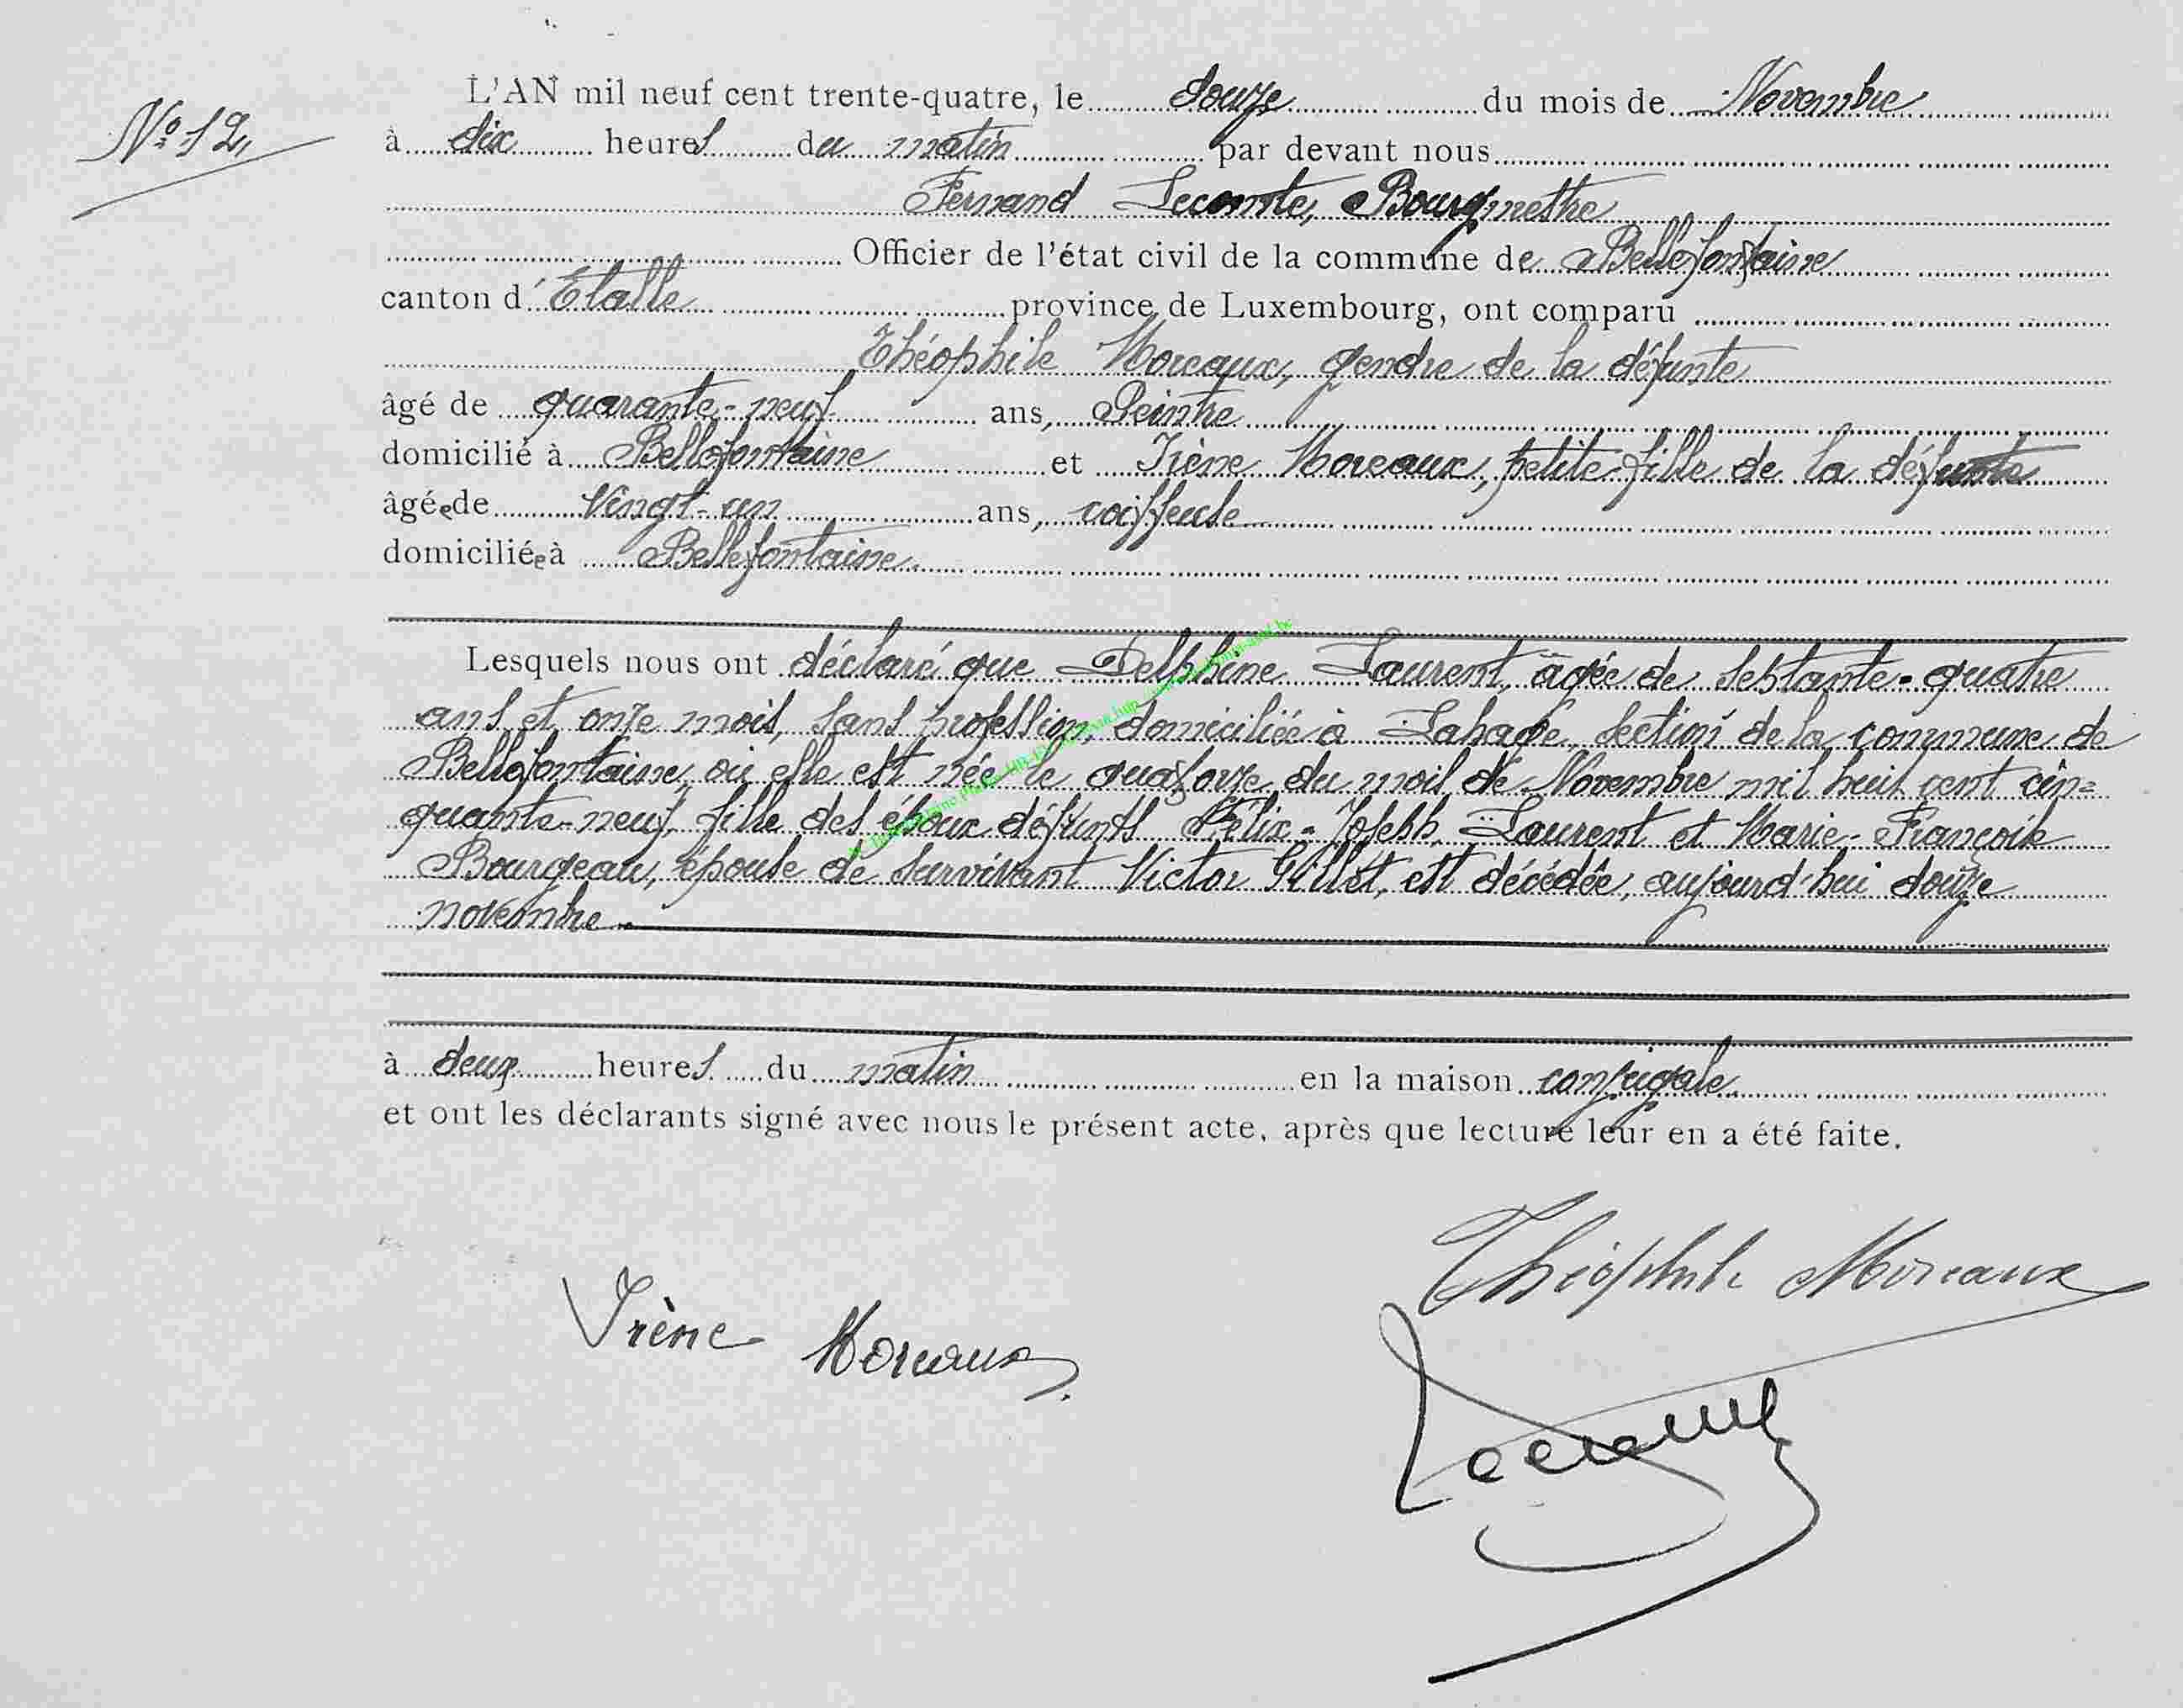 L'AN mil neuf cent trente-quatre, le douze du mois de Novembre
N° 12,
à dix heures du matin par devant nous
Fernand Lecomte, Bourgmestre
Officier de l'état civil de la commune de Bellefontaine
canton d'Etalle province de Luxembourg, ont comparu
Théophile Moreaux, gendre de la défunte
âgé de quarante-neuf ans, Peintre
domicilié à Bellefontaine et Irène Moreaux, petite-fille de la défunte
âgée de vingt-un ans, coiffeuse
domiciliée à Bellefontaine.
Lesquels nous ont déclaré que Delphine Laurent, âgée de septante-quatre
ans et onze mois, sans profession, domiciliée à Lahage, section de la commune de
Bellefontaine, où elle est née le quatorze du mois de Novembre mil huit cent cin=
quante-neuf, fille des époux défunts Félix-Joseph Laurent et Marie-Françoise
Bourgeau, épouse de survivant Victor Gillet, est décédée, aujourd'hui douze
novembre
à deux heures du matin en la maison conjugale
et ont les déclarants signé avec nous le présent acte, après que lecture leur en a été faite.
Théophile Moreaux
Irène Moreaux